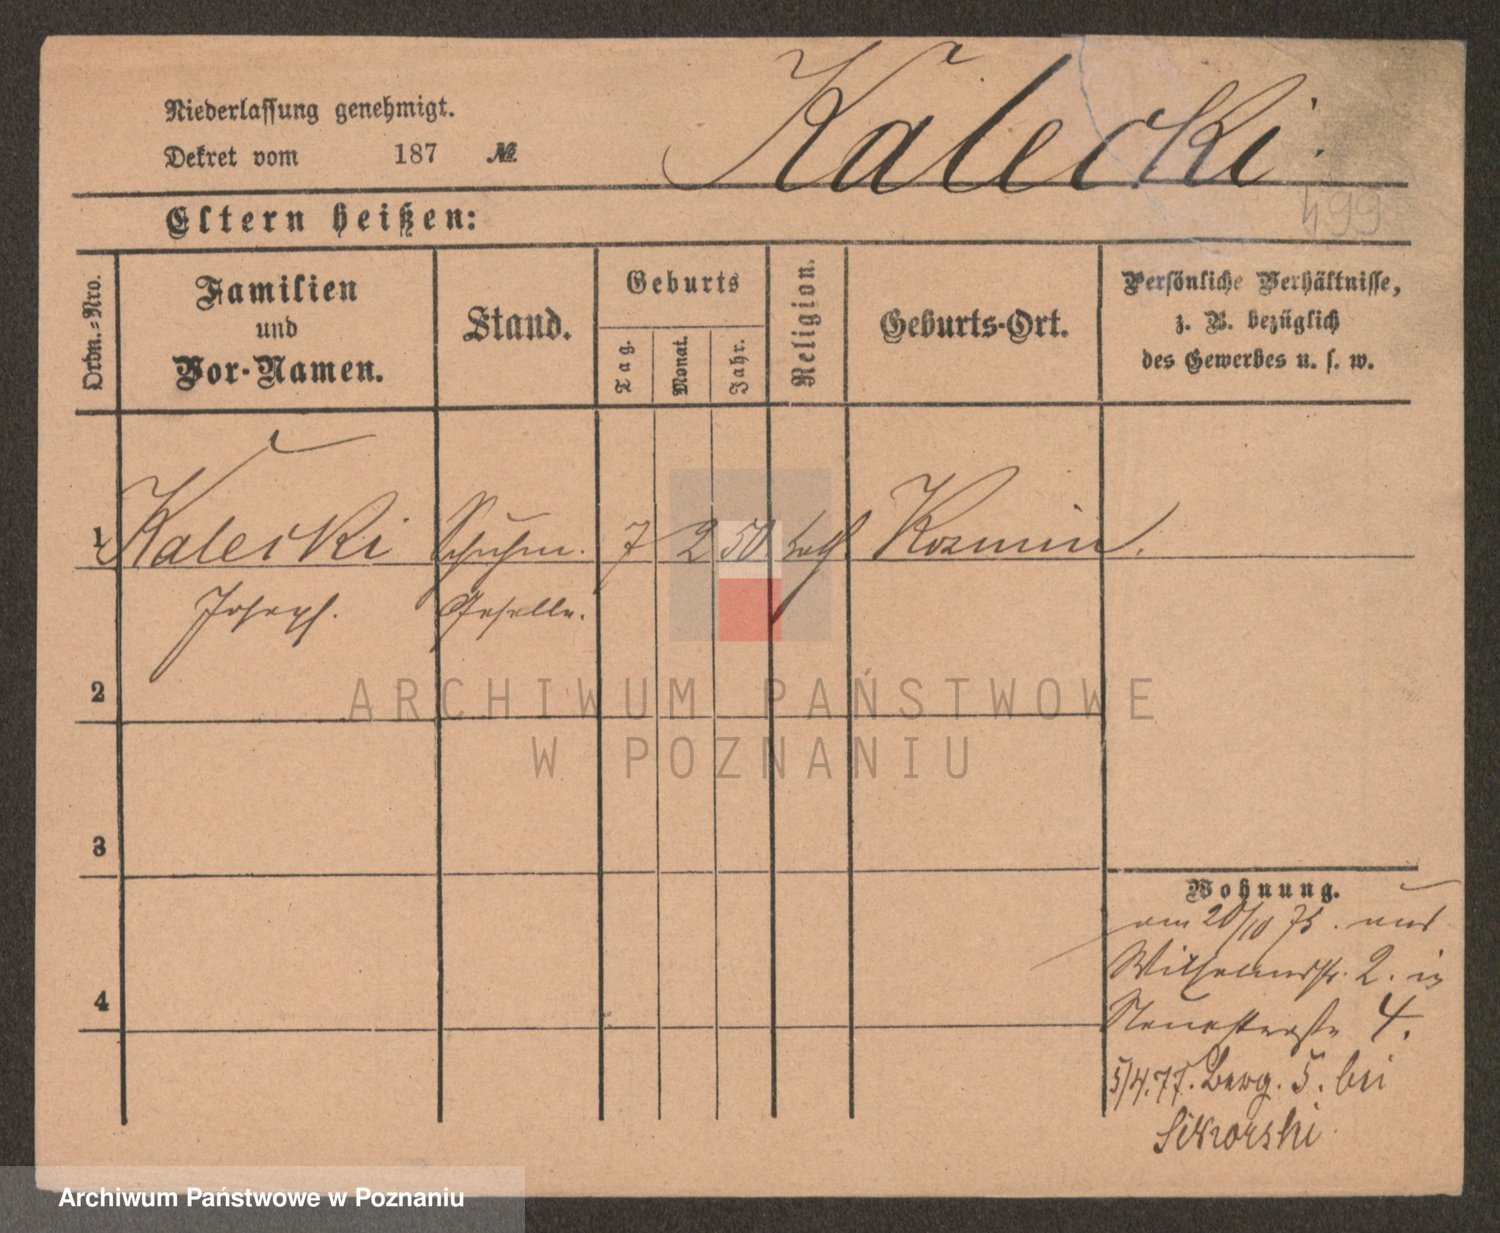 Niederlassung genehmigt.
Dekret vom 187 №
Kalecki
499
Eltern heißen:
Ordn.-Nro.
Familien
und
Vor-Namen.
Stand.
Geburts
Tag.
Monat.
Jahr.
Religion.
Geburts-Ort.
Persönliche Verhältnisse,
z. B. bezüglich
des Gewerbes u. s. w.
1 Kalecki Schuhm. 7 2 50 kath Kozmin.
Joseph. Geselle.
2
3
4
Wohnung.
am 20/10 75. aus
Wilhelmstr. 2. in
Neuestraße 4.
5/4.77. Berg. 5. bei
Sikorski
ARCHIWUM PAŃSTWOWE
W POZNANIU
Archiwum Państwowe w Poznaniu